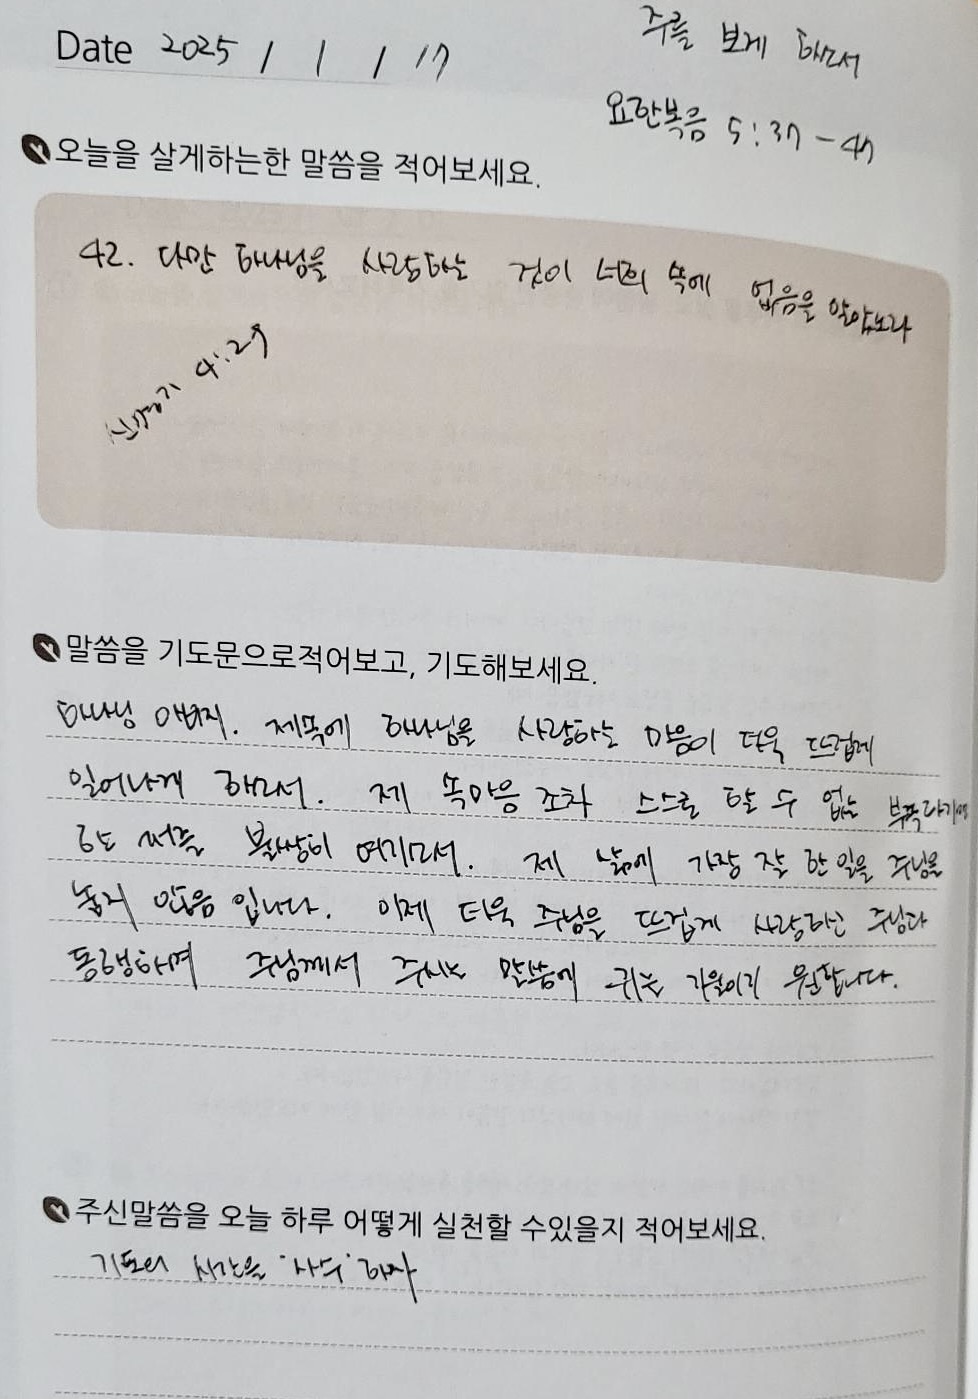 주를 보게 하소서
Date 2025 / 1 / 17
요한복음 5:37-47
오늘을 살게하는한 말씀을 적어보세요.
42. 다만 하나님을 사랑하는 것이 너희 속에 없음을 알았노라
신명기 4:29
말씀을 기도문으로적어보고, 기도해보세요.
하나님 아버지. 제속에 하나님을 사랑하는 마음이 더욱 뜨겁게
일어나게 하소서. 제 속마음 조차 스스로 할 수 없는
저를 불쌍히 여기소서. 제 삶에 가장 잘 한 일을 주님을
놓지 않음 입니다. 이제 더욱 주님을 뜨겁게 사랑하고 주님과
동행하며 주님께서 주시는 말씀에 귀는 기울이기 원합니다.
주신말씀을 오늘 하루 어떻게 실천할 수있을지 적어보세요.
기도의 시간을 '사수' 하자